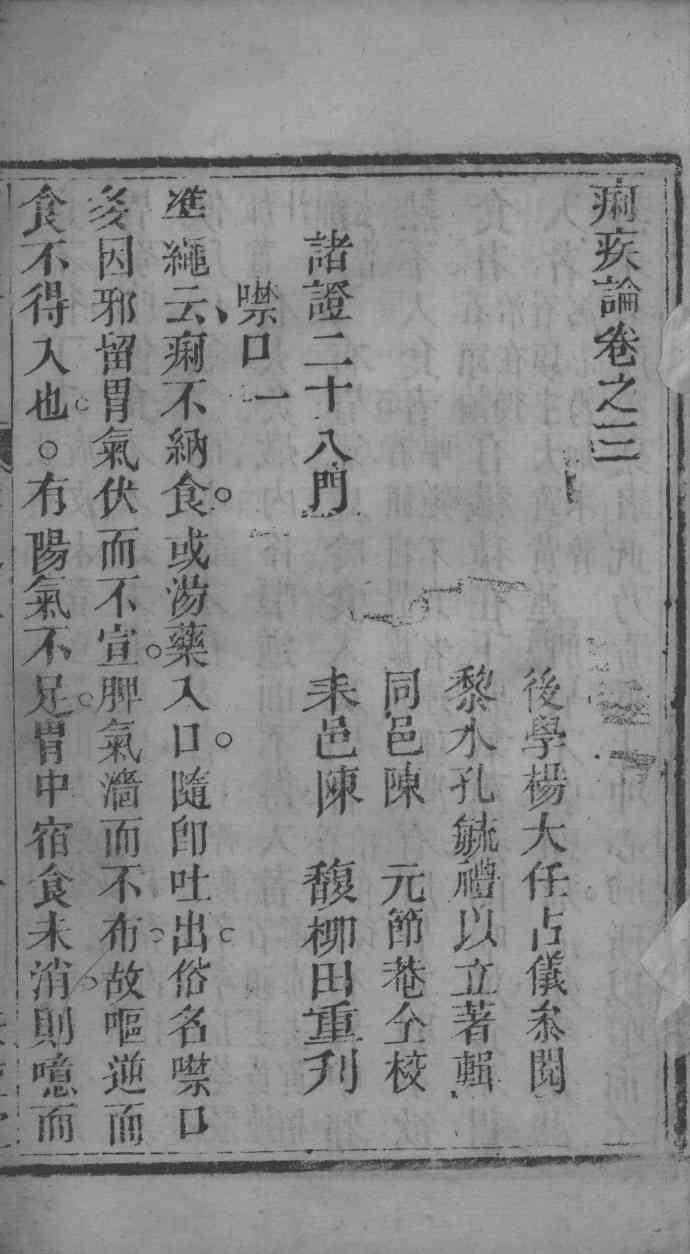 痢疾論卷之三
後學楊大任占儀叅閱
黎水孔毓禮以立著輯
同邑陳　元節菴仝校
耒邑陳　馥柳田重刋
諸證二十八門
噤口一
準繩云痢不納食。或湯藥入口。隨即吐出。俗名噤口
多因邪留胃氣伏而不宣。脾氣濇而不布。故嘔逆而
食不得入也。○有陽氣不足。胃中宿食未消。則噫而